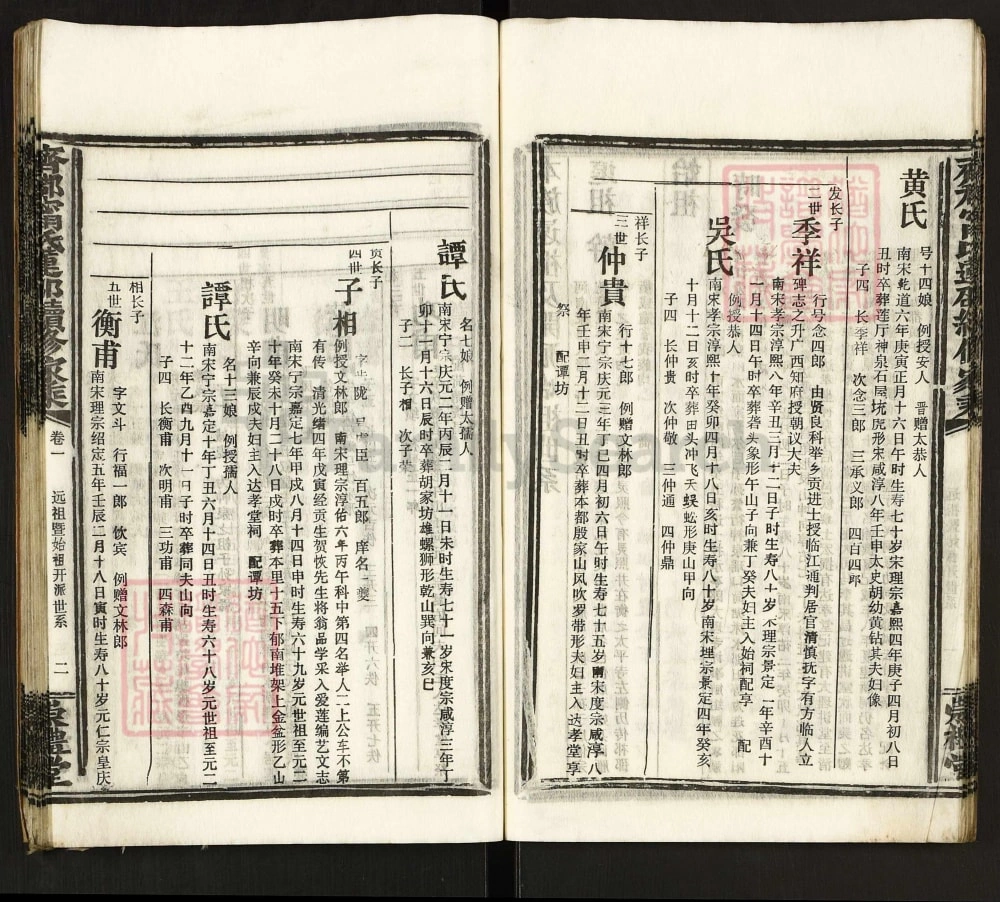 黄氏
号十四娘　例授安人　晋赠太恭人
南宋乾道六年庚寅正月十六日午时生寿七十岁宋理宗嘉熙四年庚子四月初八日
丑时卒葬莲厅神泉石屋坑虎形宋咸淳八年壬申太史胡幼黄钻其夫妇像
子四　长季祥　次念三郎　三承义郎　四百四郎
发长子
三世 季祥
行号念四郎　由贤良科举乡贡进士授临江通判居官清慎抚字有方临人立
碑志之升广西知府授朝议大夫
南宋孝宗淳熙八年辛丑三月十二日子时生寿八十岁宋理宗景定二年辛酉十
一月十四日午时卒葬砻头象形午山子向兼丁癸夫妇主入始祠配享　配
吳氏
例授恭人
南宋孝宗淳熙十年癸卯四月十八日亥时生寿八十岁南宋理宗景定四年癸亥
十月十二日亥时卒葬田头冲飞天蜈蚣形庚山甲向
子四　长仲贵　次仲敬　三仲通　四仲鼎
祥长子
三世 仲貴
行十七郎　例赠文林郎
南宋宁宗庆元三年丁巳四月初六日午时生寿七十五岁南宋度宗咸淳八
年壬申二月十二日丑时卒葬本都殷家山风吹罗带形夫妇主入达孝堂享
祭　配谭坊
譚氏
名七娘　例赠太孺人
南宋宁宗庆元二年丙辰二月十一日未时生寿七十一岁宋度宗咸淳三年丁
卯十一月十六日辰时卒葬胡家坊雄螺狮形乾山巽向兼亥巳
子二　长子相　次子
贵长子
四世 子相
百五郎　庠名一夔
例授文林郎　南宋理宗淳佑六年丙午科中第四名举人二上公车不第
有传　清光绪四年戊寅经贡生贺恢先生将翁品学采入爱莲编艺文志
南宋宁宗嘉定七年甲戌八月十四日申时生寿六十九岁元世祖至元二
十年癸未十月二十八日戌时卒葬本里十五下郁南堆架上金盆形乙山
辛向兼辰戌夫妇主入达孝堂祠　配谭坊
譚氏
名十三娘　例授孺人
南宋宁宗嘉定十年丁丑六月十四日丑时生寿六十八岁元世祖至元二
十二年乙酉九月十一日子时卒葬同夫山向
子四　长衡甫　次明甫　三功甫　四森甫
相长子
五世 衡甫
字文斗　行福一郎　饮宾　例赠文林郎
南宋理宗绍定五年壬辰二月十八日寅时生寿八十岁元仁宗皇庆
卷一　远祖暨始祖开派世系　二